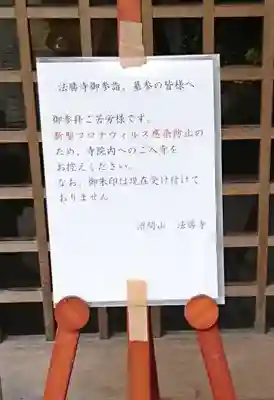 法勝寺御参詣、墓参の皆様へ
御参拝ご苦労様です。
新型コロナウィルス感染防止の
ため、寺院内へのご入寺を
お控えください。
なお、御朱印は現在受け付けて
おりません
法勝寺